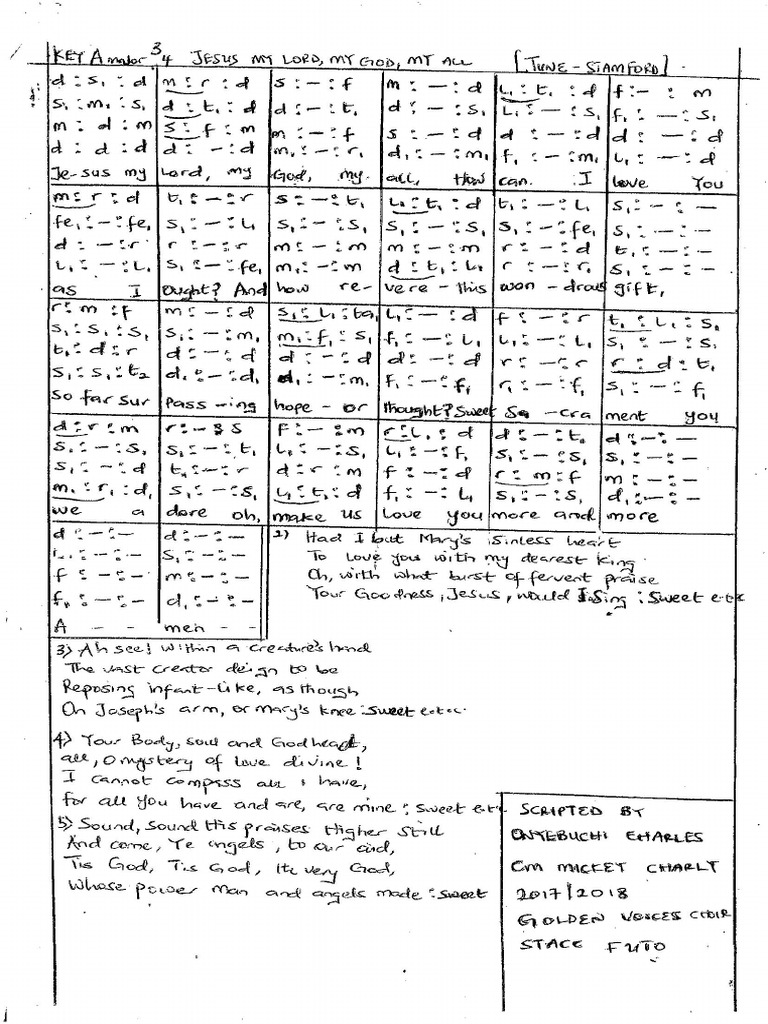 KEY A major 3/4 JESUS MY LORD, MY GOD, MY ALL [TUNE - STAMFORD]
d : s₁ : d | m : r : d | s : - : f | m : - : d | l₁ : t₁ : d | f : - : m
s₁ : m₁ : s₁ | d : t₁ : d | d : - : t₁ | d : - : s₁ | l₁ : - : s₁ | f₁ : - : s₁
m : d : m | s : f : m | m : - : f | s : - : d | d : - : d | d : - : d
d : d : d | d : - : d | m₁ : - : r₁ | d₁ : - : m₁ | f₁ : - : m₁ | l₁ : - : d
Je-sus my | Lord, my | God, my | all, How | can I | love You
m : r : d | t₁ : - : r | s : - : t₁ | l₁ : t₁ : d | t₁ : - : l₁ | s₁ : - : -
fe₁ : - : fe₁ | s₁ : - : l₁ | s₁ : - : s₁ | s₁ : - : s₁ | s₁ : - : fe₁ | s₁ : - : -
d : - : r | r : - : r | m : - : m | m : - : m | r : - : d | t₁ : - : -
l₁ : - : l₁ | s₁ : - : fe₁ | m₁ : - : m | d : t₁ : l₁ | r : - : r₁ | s₁ : - : -
as I | ought? And | how re- | vere - this | won - drous | gift,
r : m : f | m : - : d | s₁ : l₁ : ta₁ | l₁ : - : d | f : - : r | t₁ : l₁ : s₁
s₁ : s₁ : s₁ | s₁ : - : m₁ | m₁ : f₁ : s₁ | f₁ : - : l₁ | l₁ : - : l₁ | s₁ : - : s₁
t₁ : d : r | d : - : d | d : - : d | d : - : d | r : - : r | r : d : t₁
s₁ : s₁ : t₂ | d₁ : - : d₁ | d₁ : - : m₁ | f₁ : - : f₁ | r₁ : - : f₁ | s₁ : - : f₁
so far sur | pass - ing | hope - or | thought? Sweet | Sa - cra | ment you
d : r : m | r : - : s | f : - : m | r : l₁ : d | d : - : t₁ | d : - : -
s₁ : - : s₁ | s₁ : - : t₁ | l₁ : - : s₁ | l₁ : - : f₁ | s₁ : - : s₁ | s₁ : - : -
s₁ : - : d | t₁ : - : r | d : r : m | f : - : d | r : m : f | m : - : -
m₁ : r₁ : d₁ | s₁ : - : s₁ | l₁ : t₁ : d | f₁ : - : l₁ | s₁ : - : s₁ | d₁ : - : -
we a | dore oh, | make us | love you | more and | more
d : - : - | d : - : -
l₁ : - : - | s₁ : - : -
f : - : - | m : - : -
f₁ : - : - | d₁ : - : -
A - - | men - -
2) Had I but Mary's sinless heart
To love you with my dearest King
Oh, with what burst of fervent praise
Your Goodness, Jesus, would I sing : Sweet e.t.c
3) Ah see! within a creature's hand
The vast creator deign to be
Reposing infant-like, as though
On Joseph's arm, or Mary's knee : sweet e.t.c.
4) Your Body, soul and Godhead,
all, O mystery of love divine!
I cannot compass all I have,
for all You have and are, are mine : Sweet e.t.c
5) Sound, sound His praises Higher still
And come, Ye angels, to our aid,
Tis God, Tis God, the very God,
Whose power man and angels made : sweet
SCRIPTED BY
ONYEBUCHI CHARLES
CM MICKEY CHARLY
2017/2018
GOLDEN VOICES CHOIR
STACC FUTO